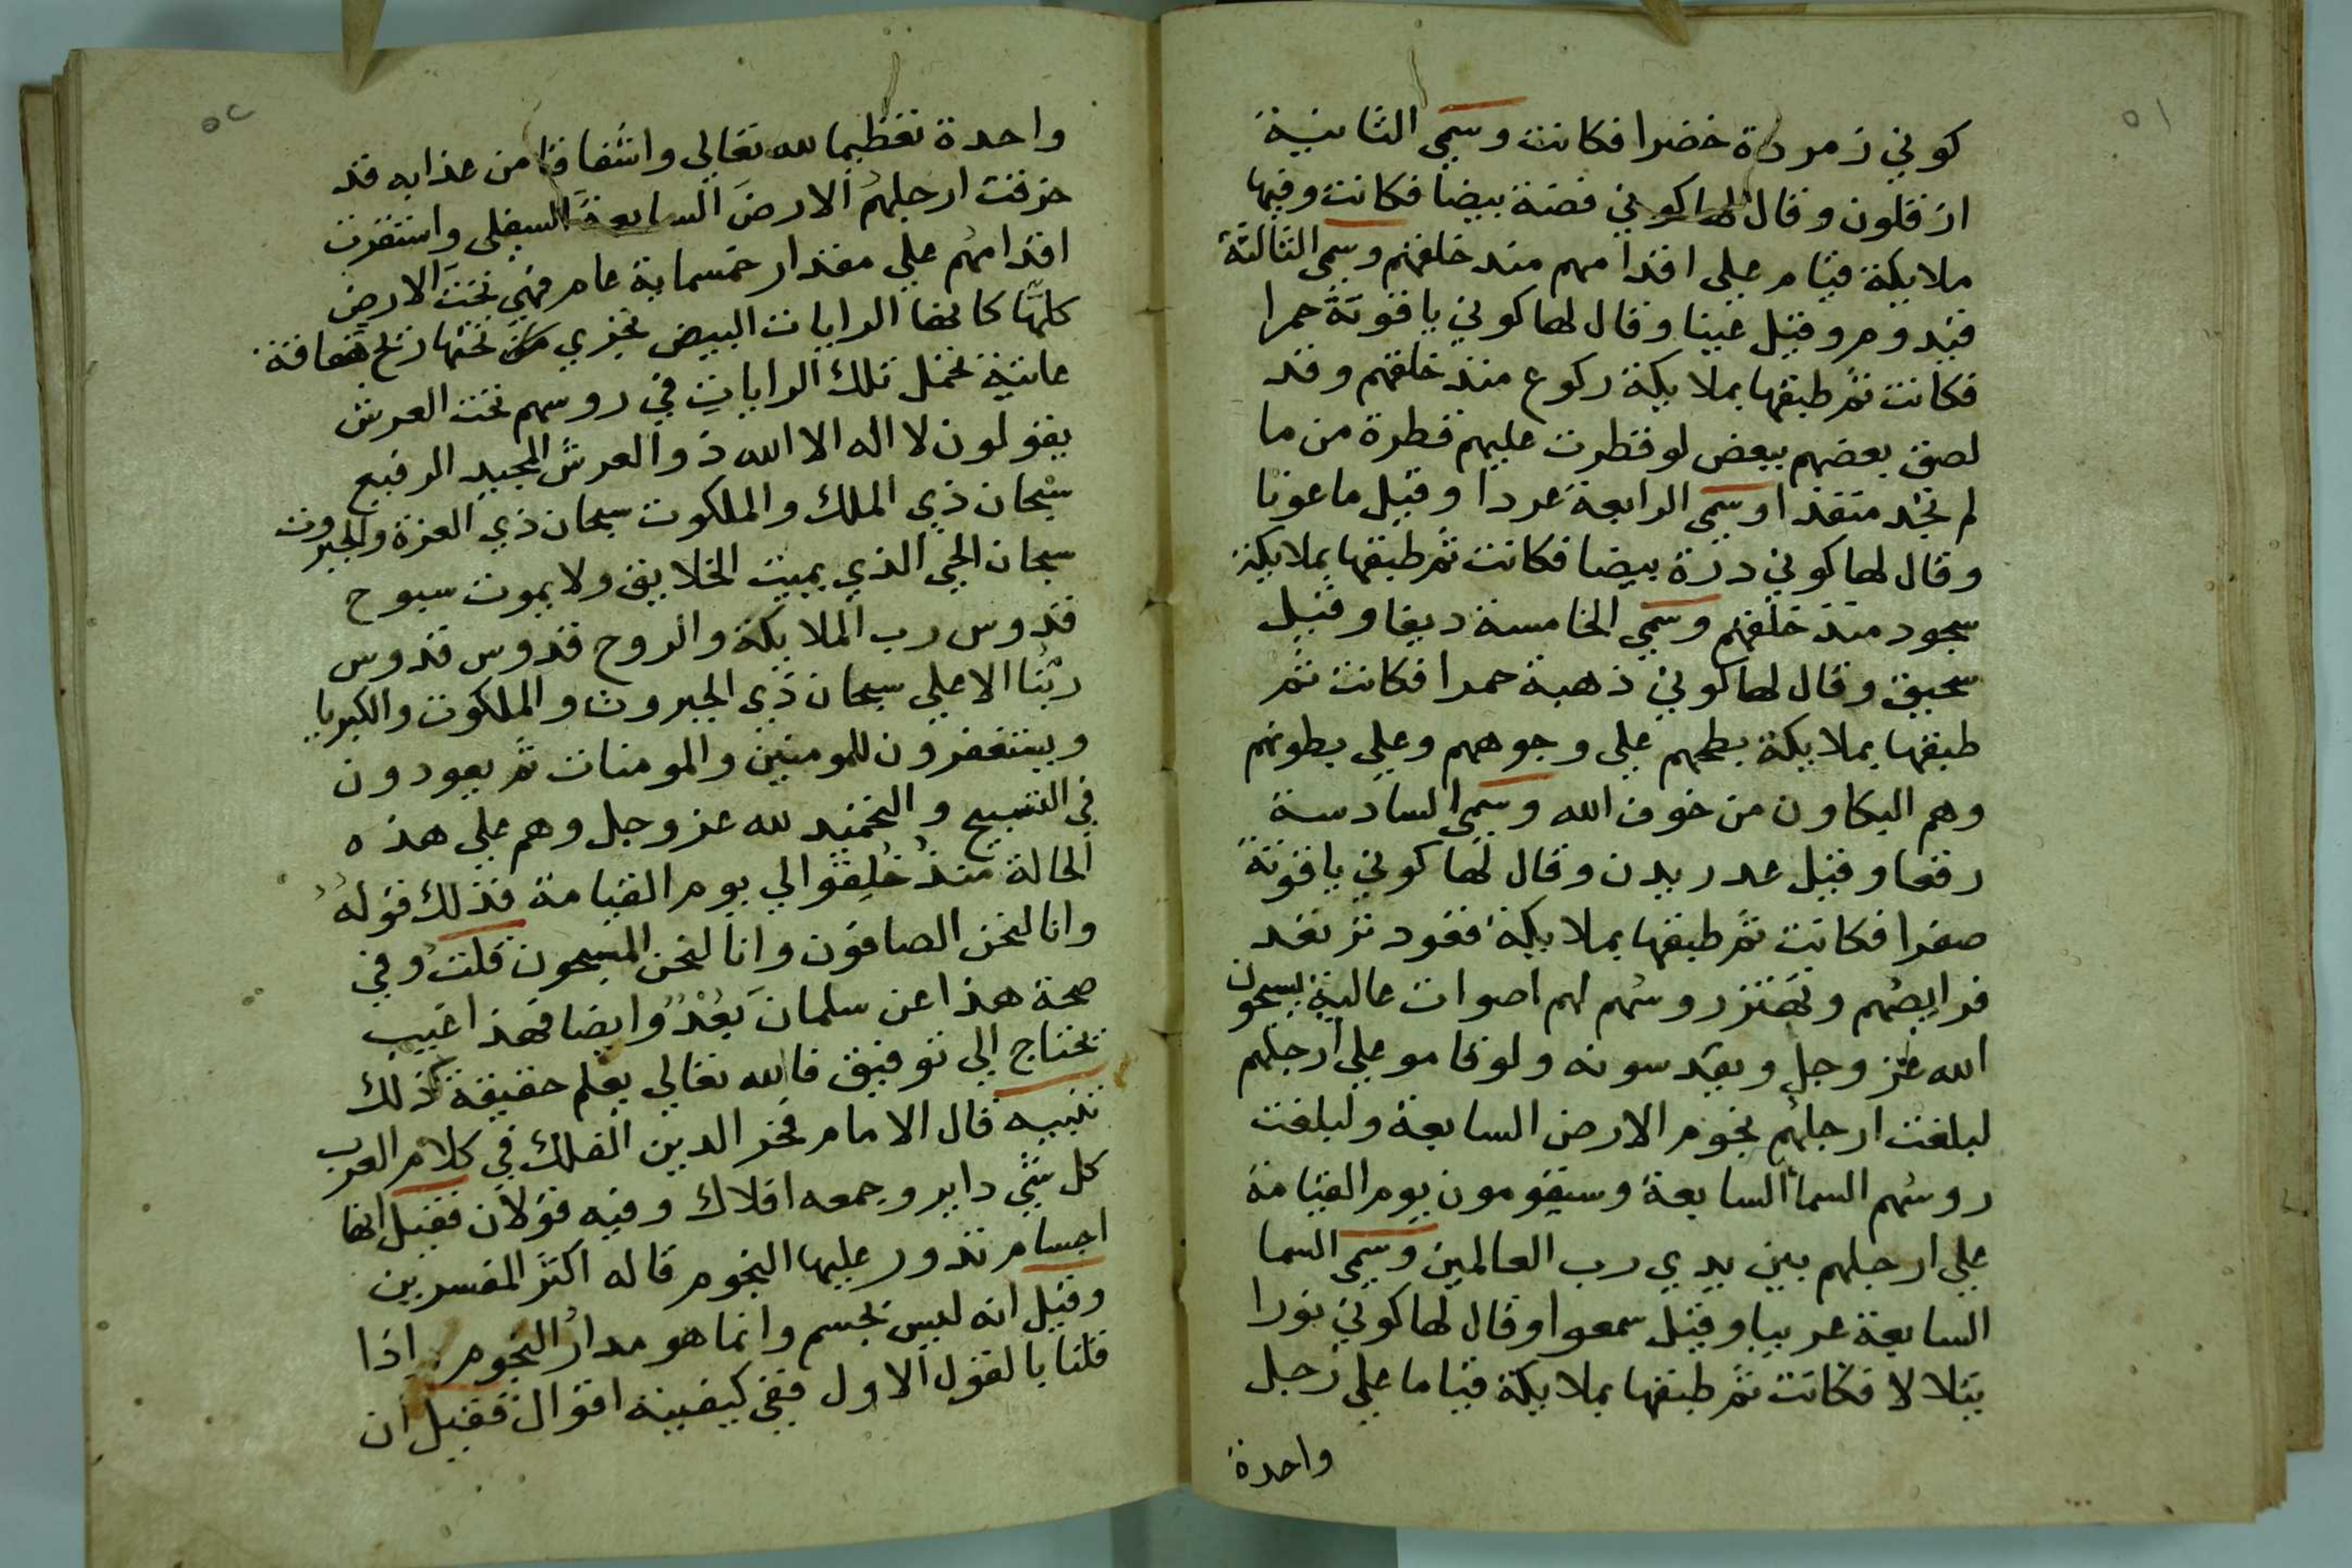 ٥١
كوني زمردة خضرا فكانت وسمي الثانية
ازقلون وقال لها كوني فضة بيضا فكانت وفيها
ملايكة قيام علي اقدامهم منذ خلقهم وسمي الثالثة
قيدوم وقيل عينا وقال لها كوني ياقوتة حمرا
فكانت ثم طبقها بملايكة ركوع منذ خلقهم وقد
لصق بعضهم ببعض لو قطرت عليهم قطرة من ما
لم تجد منفذا وسمي الرابعة عردا وقيل ماعونا
وقال لها كوني درة بيضا فكانت ثم طبقها بملايكة
سجود منذ خلقهم وسمي الخامسة ديقا وقيل
سحيق وقال لها كوني ذهبة حمرا فكانت ثم
طبقها بملايكة بطحهم علي وجوههم وعلي بطونهم
وهم البكاون من خوف الله وسمي السادسة
دفعا وقيل عدريدن وقال لها كوني ياقوتة
صفرا فكانت ثم طبقها بملايكة قعود ترتعد
فرايصهم وتهتز روسهم لهم اصوات عالية يسبحون
الله عز وجل ويقدسونه ولو قاموا علي ارجلهم
لبلغت ارجلهم تخوم الارض السابعة ولبلغت
روسهم السما السابعة وسيقومون يوم القيامة
علي ارجلهم بين يدي رب العالمين وسمي السما
السابعة عريبا وقيل سمعوا وقال لها كوني نورا
يتلالا فكانت ثم طبقها بملايكة قياما علي رجل
واحدة
٥٢
واحدة تعظيما لله تعالي واشفاقا من عذابه قد
خرقت ارجلهم الارض السابعة السفلي واستقرت
اقدامهم علي مقدار خمسماية عام فهي تحت الارض
كلها كانها الرايات البيض تجري من تحتها ريح هفافة
عاتية تحمل تلك الرايات في روسهم تحت العرش
يقولون لا اله الا الله ذو العرش المجيد الرفيع
سبحان ذي الملك والملكوت سبحان ذي العزة والجبروت
سبحان الحي الذي يميت الخلايق ولا يموت سبوح
قدوس رب الملايكة والروح قدوس قدوس
ربنا الاعلي سبحان ذي الجبروت والملكوت والكبريا
ويستغفرون للمومنين والمومنات ثم يعودون
في التسبيح والتحميد لله عز وجل وهم علي هذه
الحالة منذ خلقوا الي يوم القيامة فذلك قوله
وانا لنحن الصافون وانا لنحن المسبحون قلت وفي
صحة هذا عن سلمان بعد وايضا فهذا غيب
يحتاج الي توفيق فالله تعالي يعلم حقيقة ذلك
تنبيه قال الامام فخر الدين الفلك في كلام العرب
كل شي داير وجمعه افلاك وفيه قولان فقيل انها
اجسام تدور عليها النجوم قاله اكثر المفسرين
وقيل انه ليس بجسم وانما هو مدار النجوم اذا
قلنا بالقول الاول ففي كيفيته اقوال فقيل ان